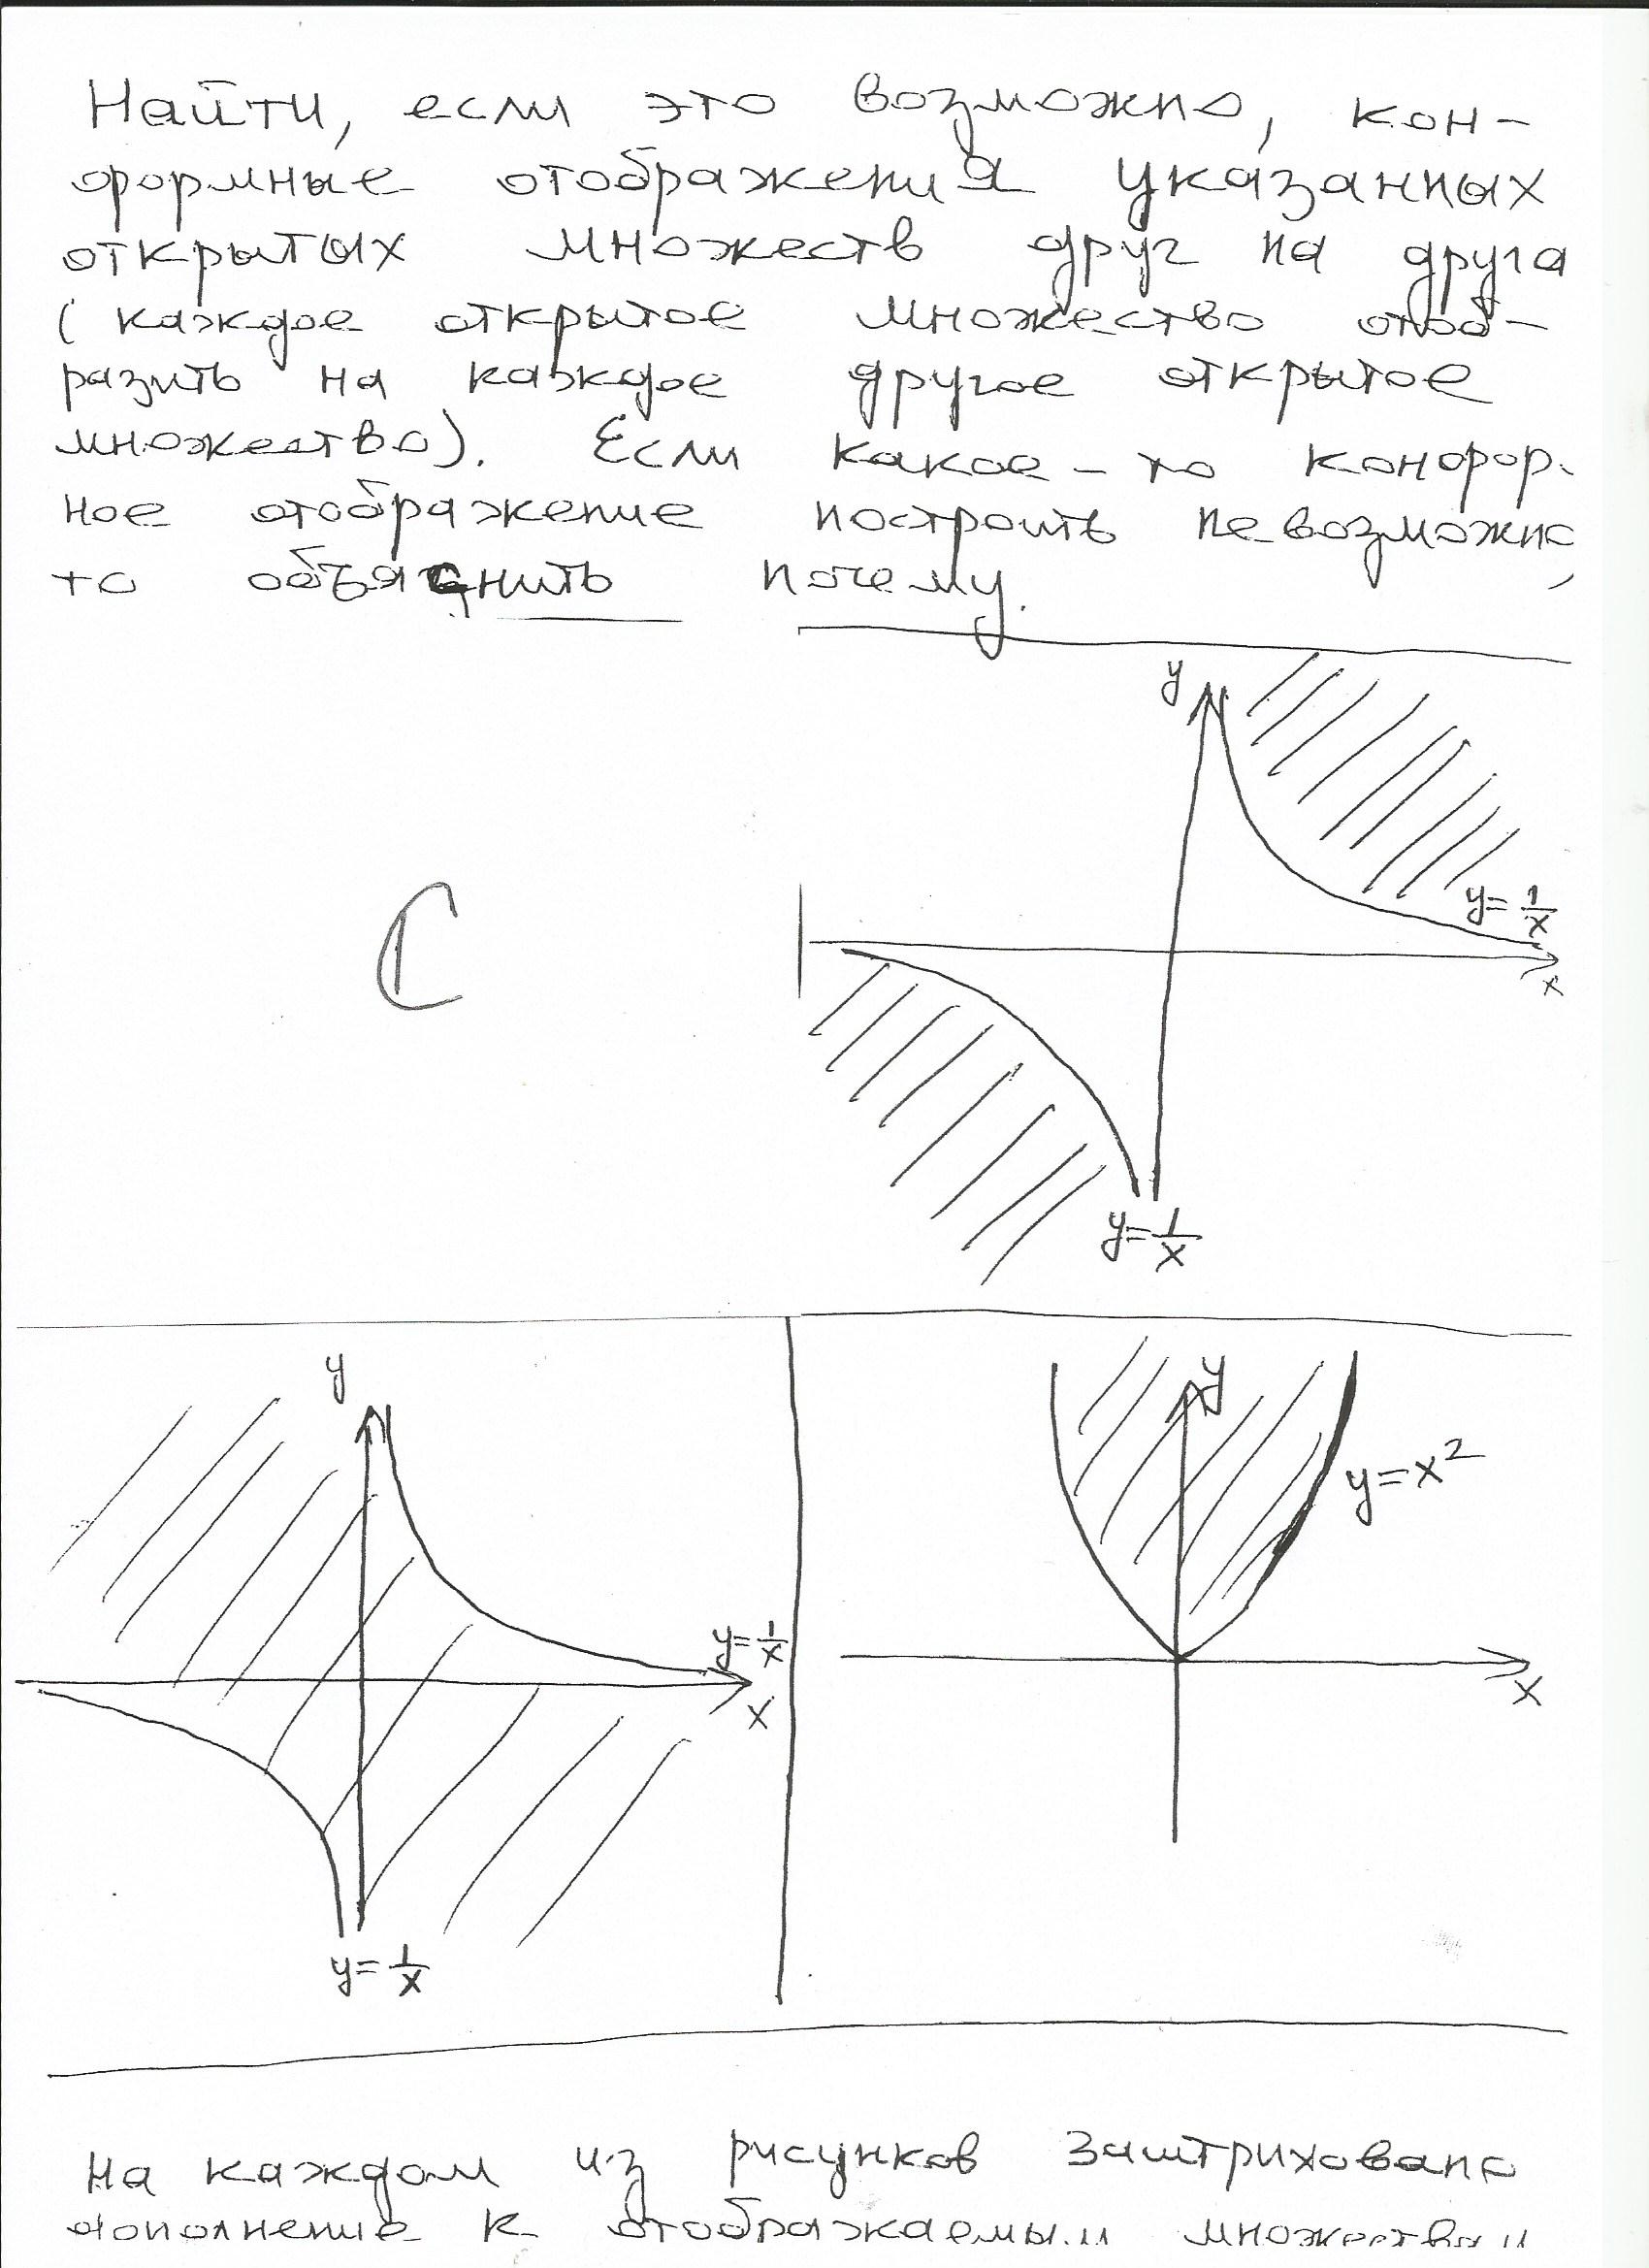 Найти, если это возможно, кон-
формные отображения указанных
открытых множеств друг на друга
(каждое открытое множество отоб-
разить на каждое другое открытое
множество). Если какое-то конфор-
ное отображение построить невозможно,
то объяснить почему.
y
y=1/x
x
ℂ
y=1/x
y
y
y=x²
y=1/x
x
x
y=1/x
На каждом из рисунков заштриховано
дополнение к отображаемым множествам